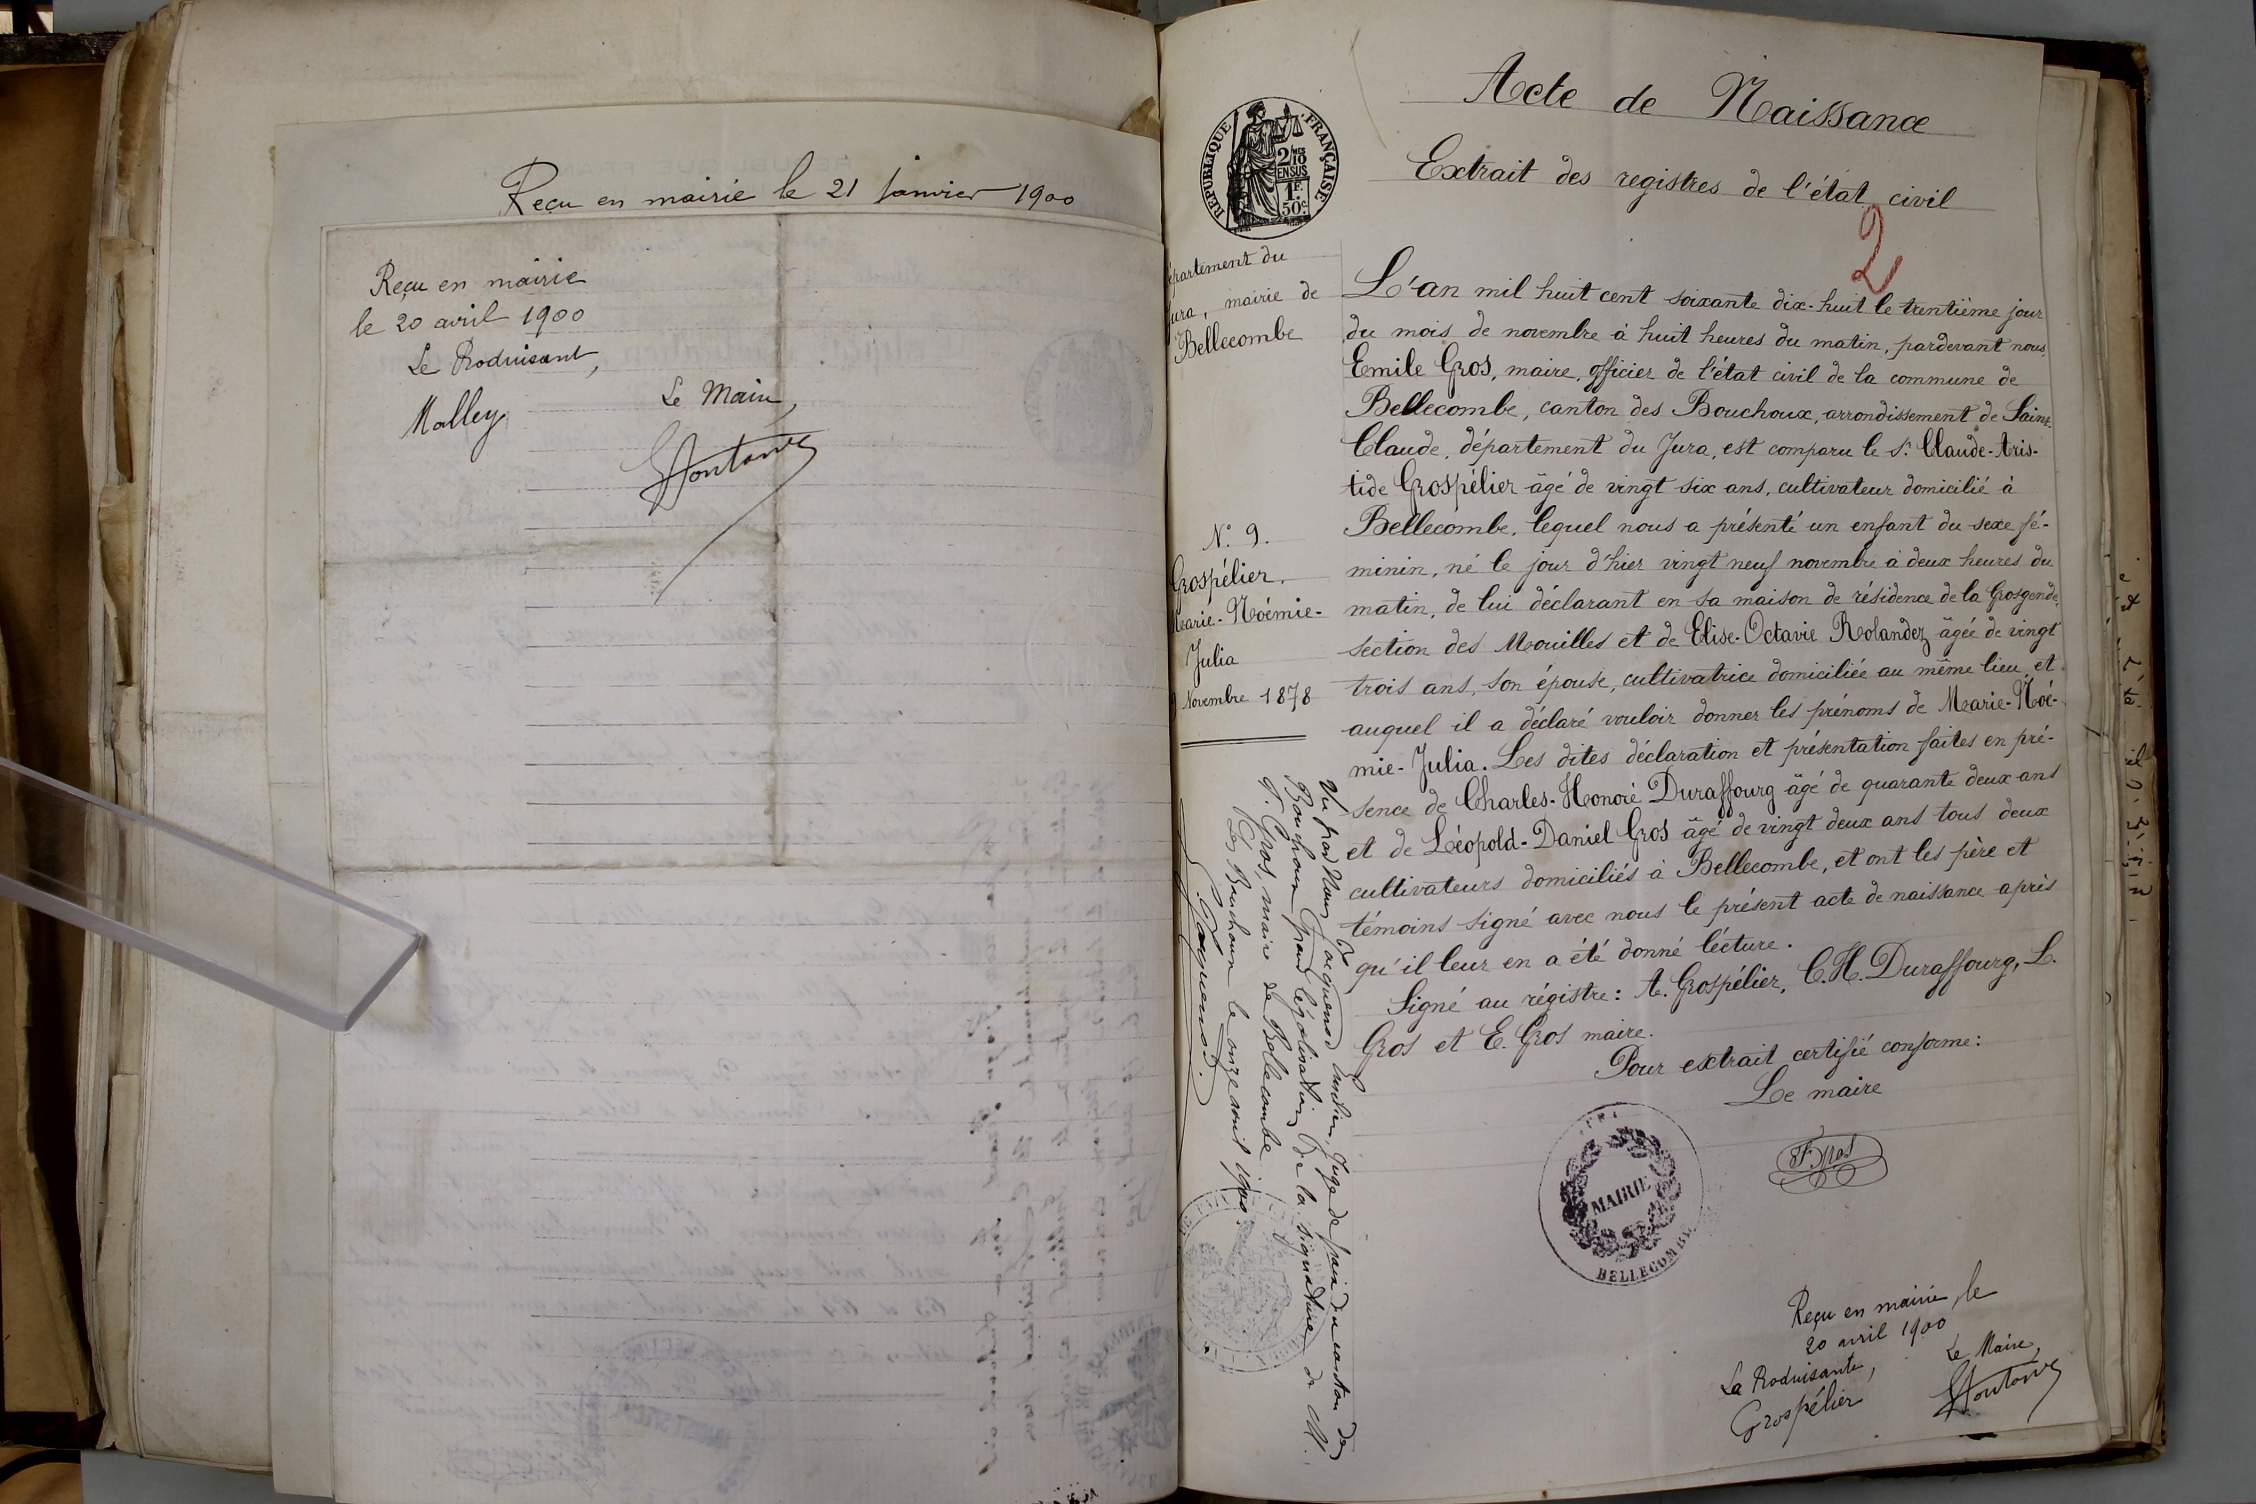 Reçu en mairie le 21 janvier 1900
Reçu en mairie
le 20 avril 1900
Le Produisant,
Malley
Le Maire,
Acte de Naissance
Extrait des registres de l'état civil
2
RÉPUBLIQUE FRANÇAISE
2/10 MES
EN SUS
1 F.
50 c.
épartement du
ura, mairie de
Bellecombe
N.º 9.
Grospélier.
Marie-Noémie-
Julia
Novembre 1878
L'an mil huit cent soixante dix-huit le trentième jour
du mois de novembre à huit heures du matin, pardevant nous,
Emile Gros, maire, officier de l'état civil de la commune de
Bellecombe, canton des Bouchoux, arrondissement de Saint-
Claude, département du Jura, est comparu le S.r Claude-Aris-
tide Grospélier âgé de vingt six ans, cultivateur domicilié à
Bellecombe, lequel nous a présenté un enfant du sexe fé-
minin, né le jour d'hier vingt neuf novembre à deux heures du
matin, de lui déclarant en sa maison de résidence de la Grosgende,
section des Mouilles et de Elise-Octavie Rolandez âgée de vingt
trois ans, son épouse, cultivatrice domiciliée au même lieu, et
auquel il a déclaré vouloir donner les prénoms de Marie-Noé-
mie-Julia. Les dites déclaration et présentation faites en pré-
sence de Charles-Honoré Duraffourg âgé de quarante deux ans
et de Léopold-Daniel Gros âgé de vingt deux ans tous deux
cultivateurs domiciliés à Bellecombe, et ont les père et
témoins signé avec nous le présent acte de naissance après
qu'il leur en a été donné lécture.
Signé au régistre: A. Grospélier, C. H. Duraffourg, L.
Gros et E. Gros maire.
Pour extrait certifié conforme:
Le maire
F. Gros
MAIRIE
BELLECOMBE
Vu par Nous Jacquenod Emilien, Juge de paix du canton des
Bouchoux pour légalisation de la signature de M.
F. Gros, maire de Bellecombe
Les Bouchoux le onze avril 1900.
Jacquenod.
Reçu en mairie, le
20 avril 1900
La Produisante,
Grospélier
Le Maire,